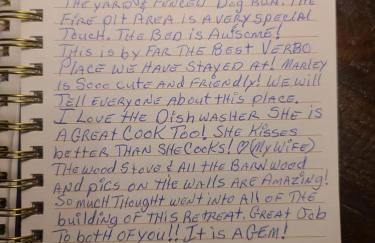 The yard & Fenced Dog Run. The
Fire pit Area is a very special
Touch. The Bed is Awesome!
This is by Far The Best Verbo
Place we have stayed at! Marley
Is Sooo cute and Friendly! We will
Tell everyone about this place.
I Love the Dishwasher She is
A Great Cook Too! She Kisses
better Than she Cooks! ♡(My Wife)
The Wood Stove & All the Barn Wood
And pics on the walls are Amazing!
So much Thought went into All of the
building of This Retreat. Great Job
To both of you!! It is A Gem!